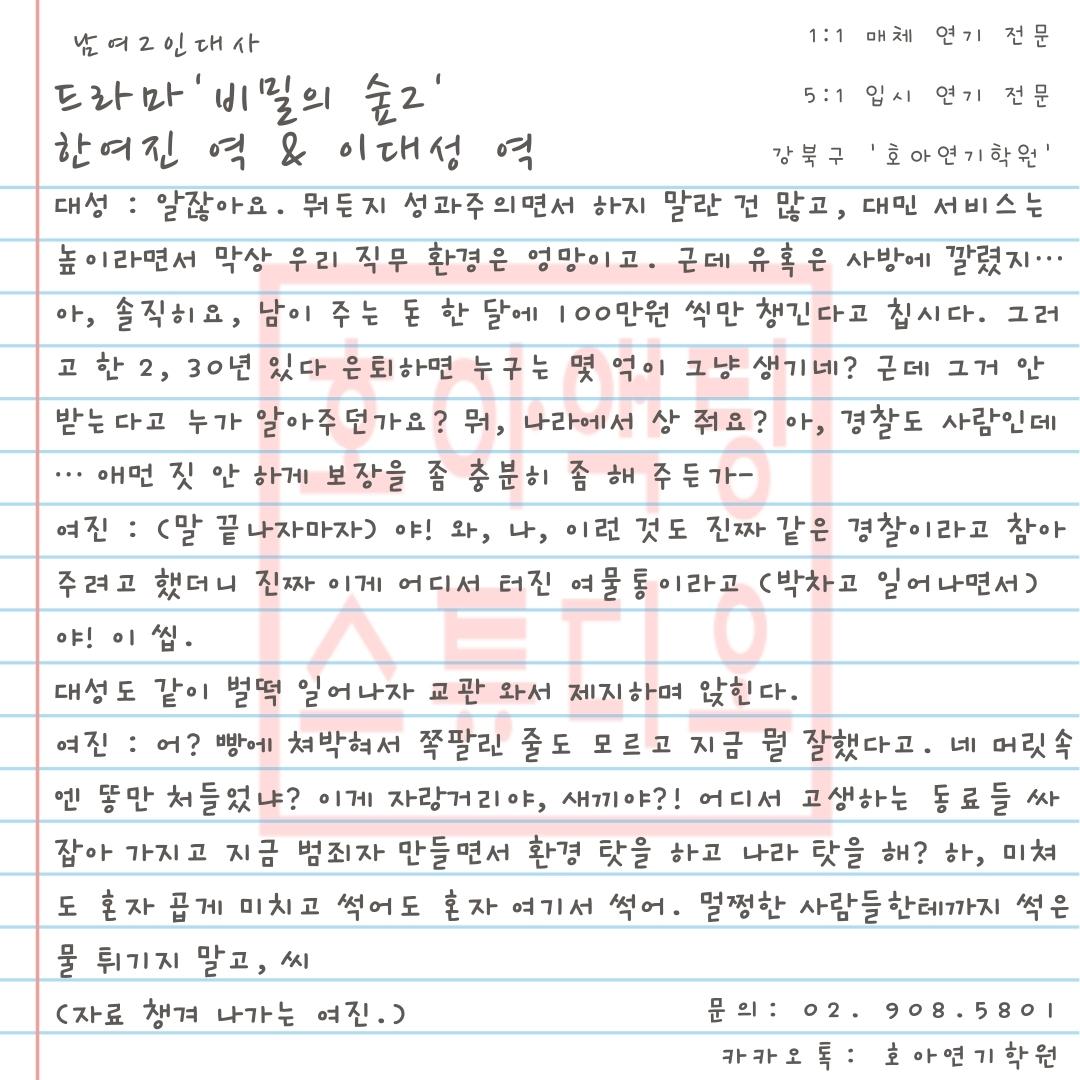 남여2인대사
1:1 매체 연기 전문
드라마 '비밀의 숲2'
5:1 입시 연기 전문
한여진 역 & 이대성 역
강북구 '호아연기학원'
대성 : 알잖아요. 뭐든지 성과주의면서 하지 말란 건 많고, 대민 서비스는
높이라면서 막상 우리 직무 환경은 엉망이고. 근데 유혹은 사방에 깔렸지…
아, 솔직히요, 남이 주는 돈 한 달에 100만원 씩만 챙긴다고 칩시다. 그러
고 한 2, 30년 있다 은퇴하면 누구는 몇 억이 그냥 생기네? 근데 그거 안
받는다고 누가 알아주던가요? 뭐, 나라에서 상 줘요? 아, 경찰도 사람인데
… 애먼 짓 안 하게 보장을 좀 충분히 좀 해 주든가-
여진 : (말 끝나자마자) 야! 와, 나, 이런 것도 진짜 같은 경찰이라고 참아
주려고 했더니 진짜 이게 어디서 터진 여물통이라고 (박차고 일어나면서)
야! 이 씹.
대성도 같이 벌떡 일어나자 교관 와서 제지하며 앉힌다.
여진 : 어? 빵에 쳐박혀서 쪽팔린 줄도 모르고 지금 뭘 잘했다고. 네 머릿속
엔 똥만 처들었냐? 이게 자랑거리야, 새끼야?! 어디서 고생하는 동료들 싸
잡아 가지고 지금 범죄자 만들면서 환경 탓을 하고 나라 탓을 해? 하, 미쳐
도 혼자 곱게 미치고 썩어도 혼자 여기서 썩어. 멀쩡한 사람들한테까지 썩은
물 튀기지 말고, 씨
(자료 챙겨 나가는 여진.)
문의: 02. 908.5801
카카오톡: 호아연기학원
호아액팅
스튜디오